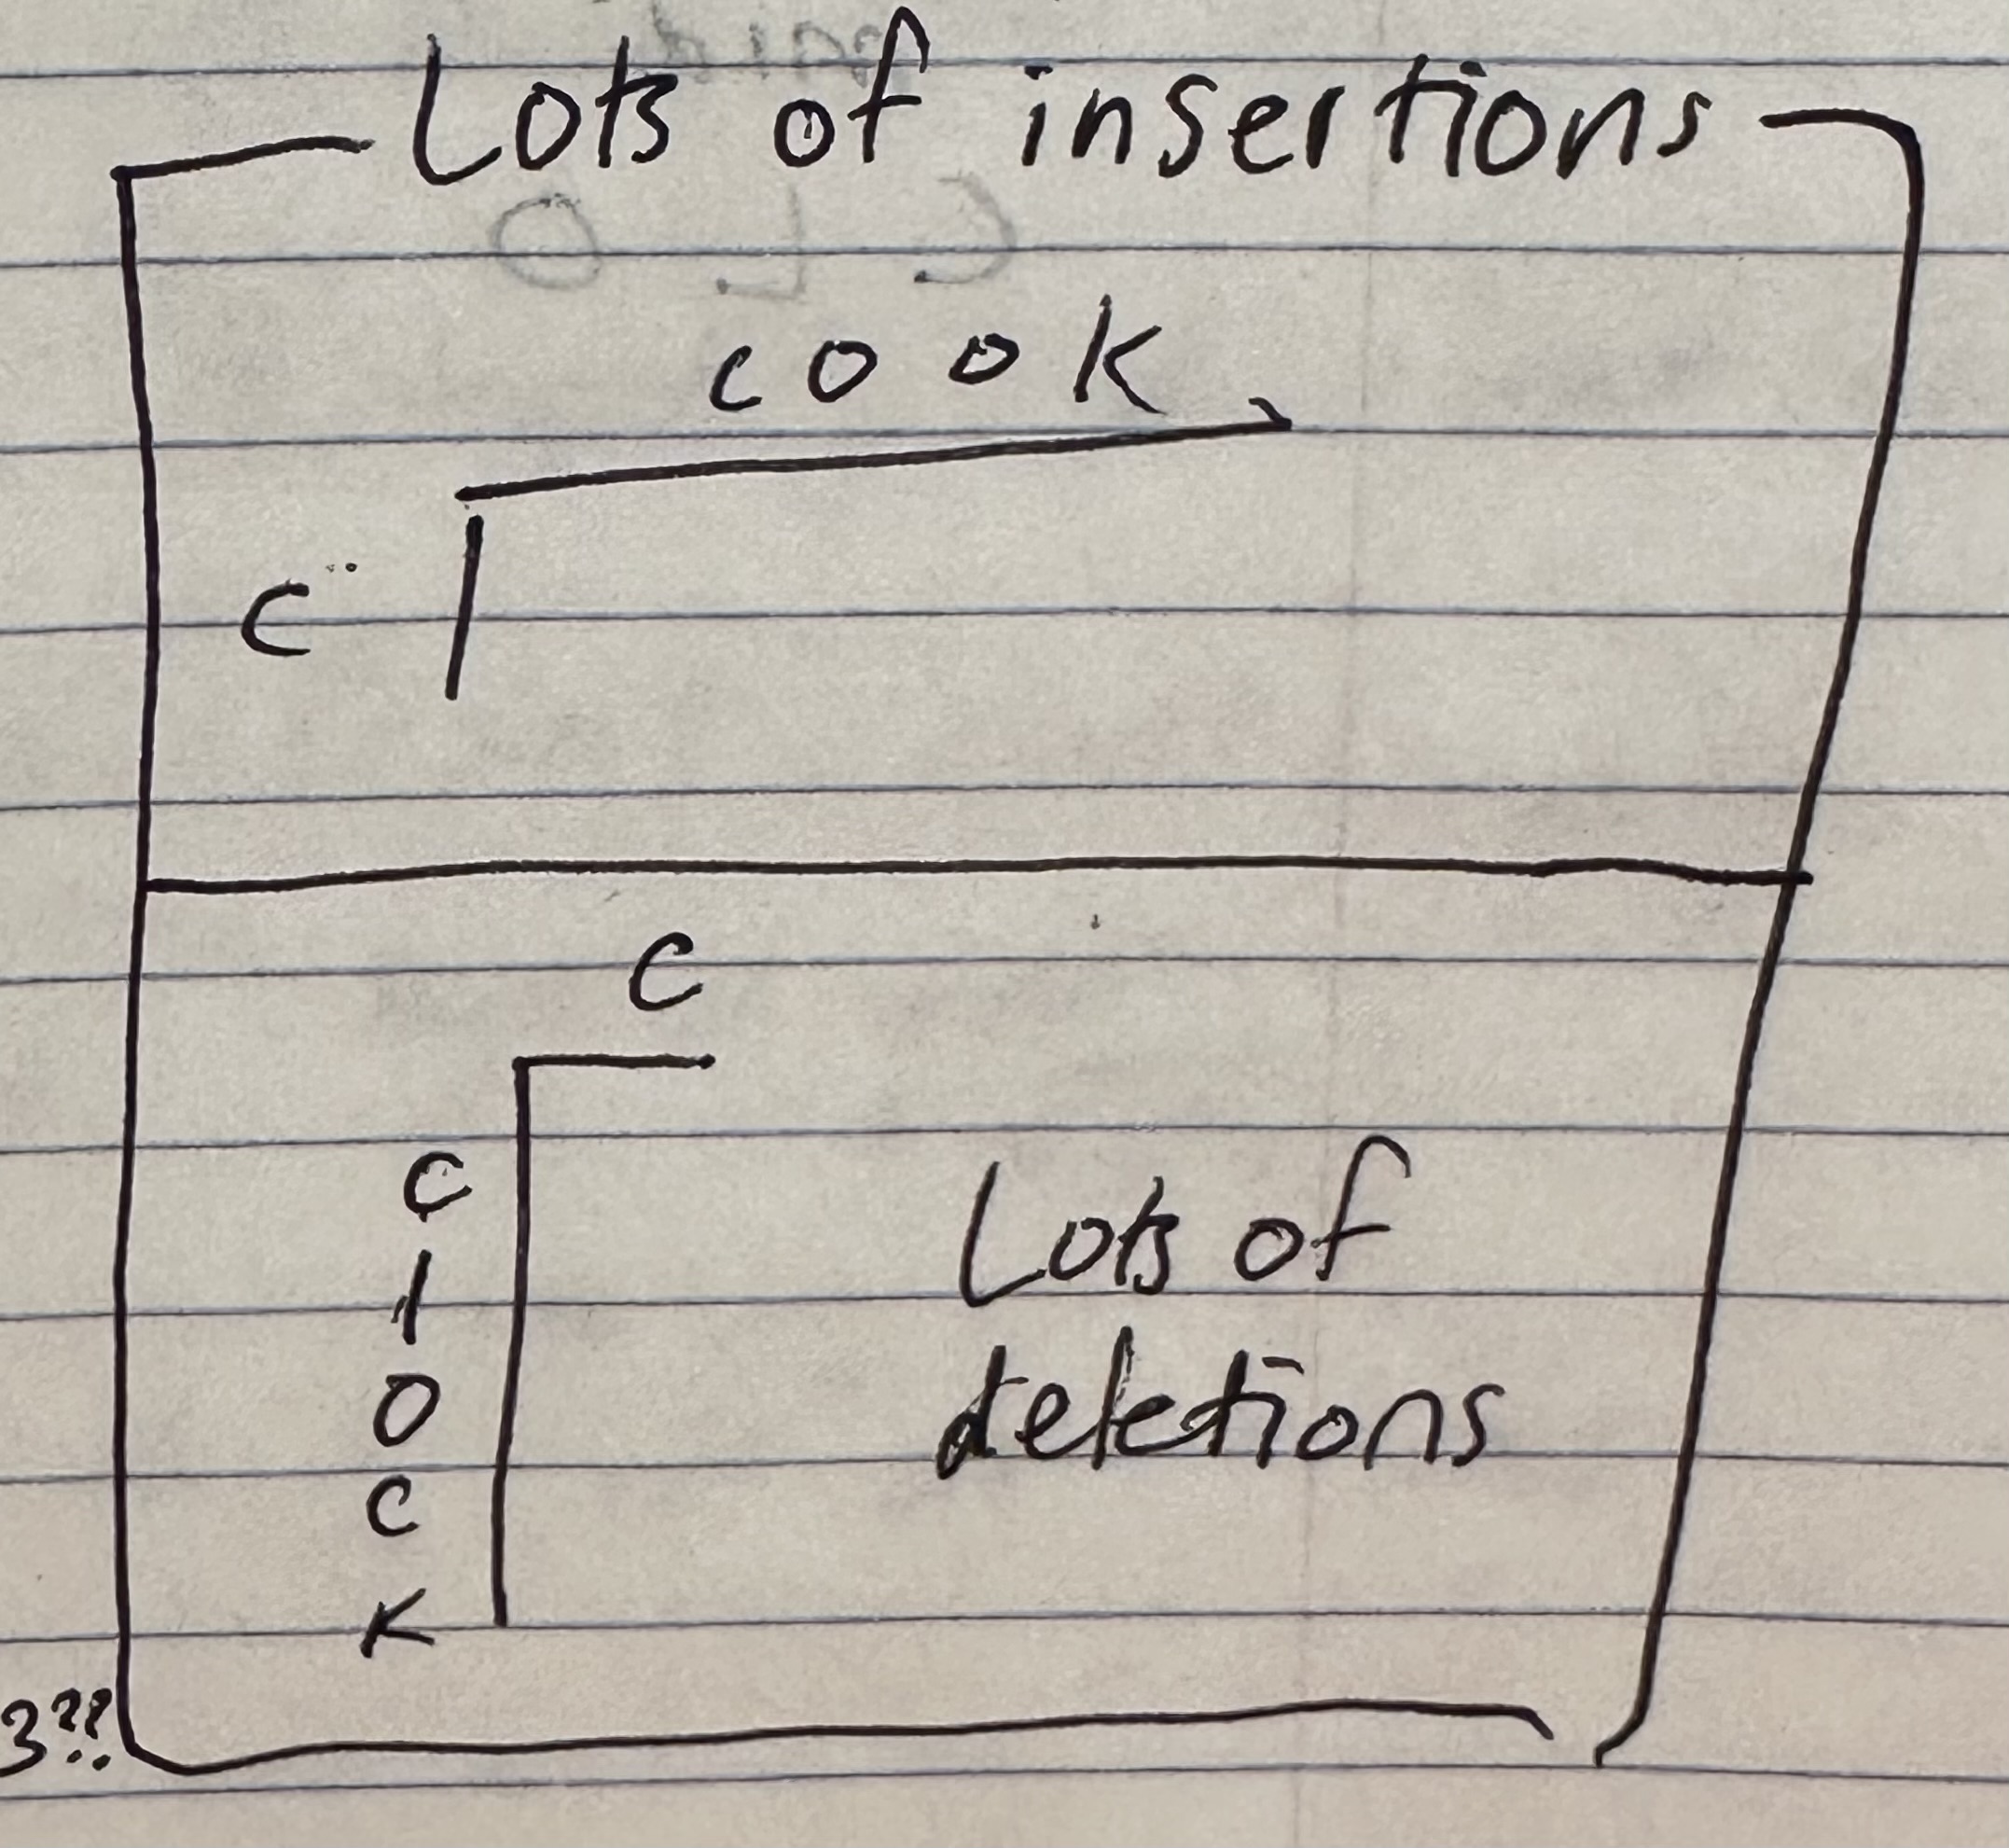 Lots of insertions
c o o k
c
c
c
l
o
c
k
Lots of
deletions
3??